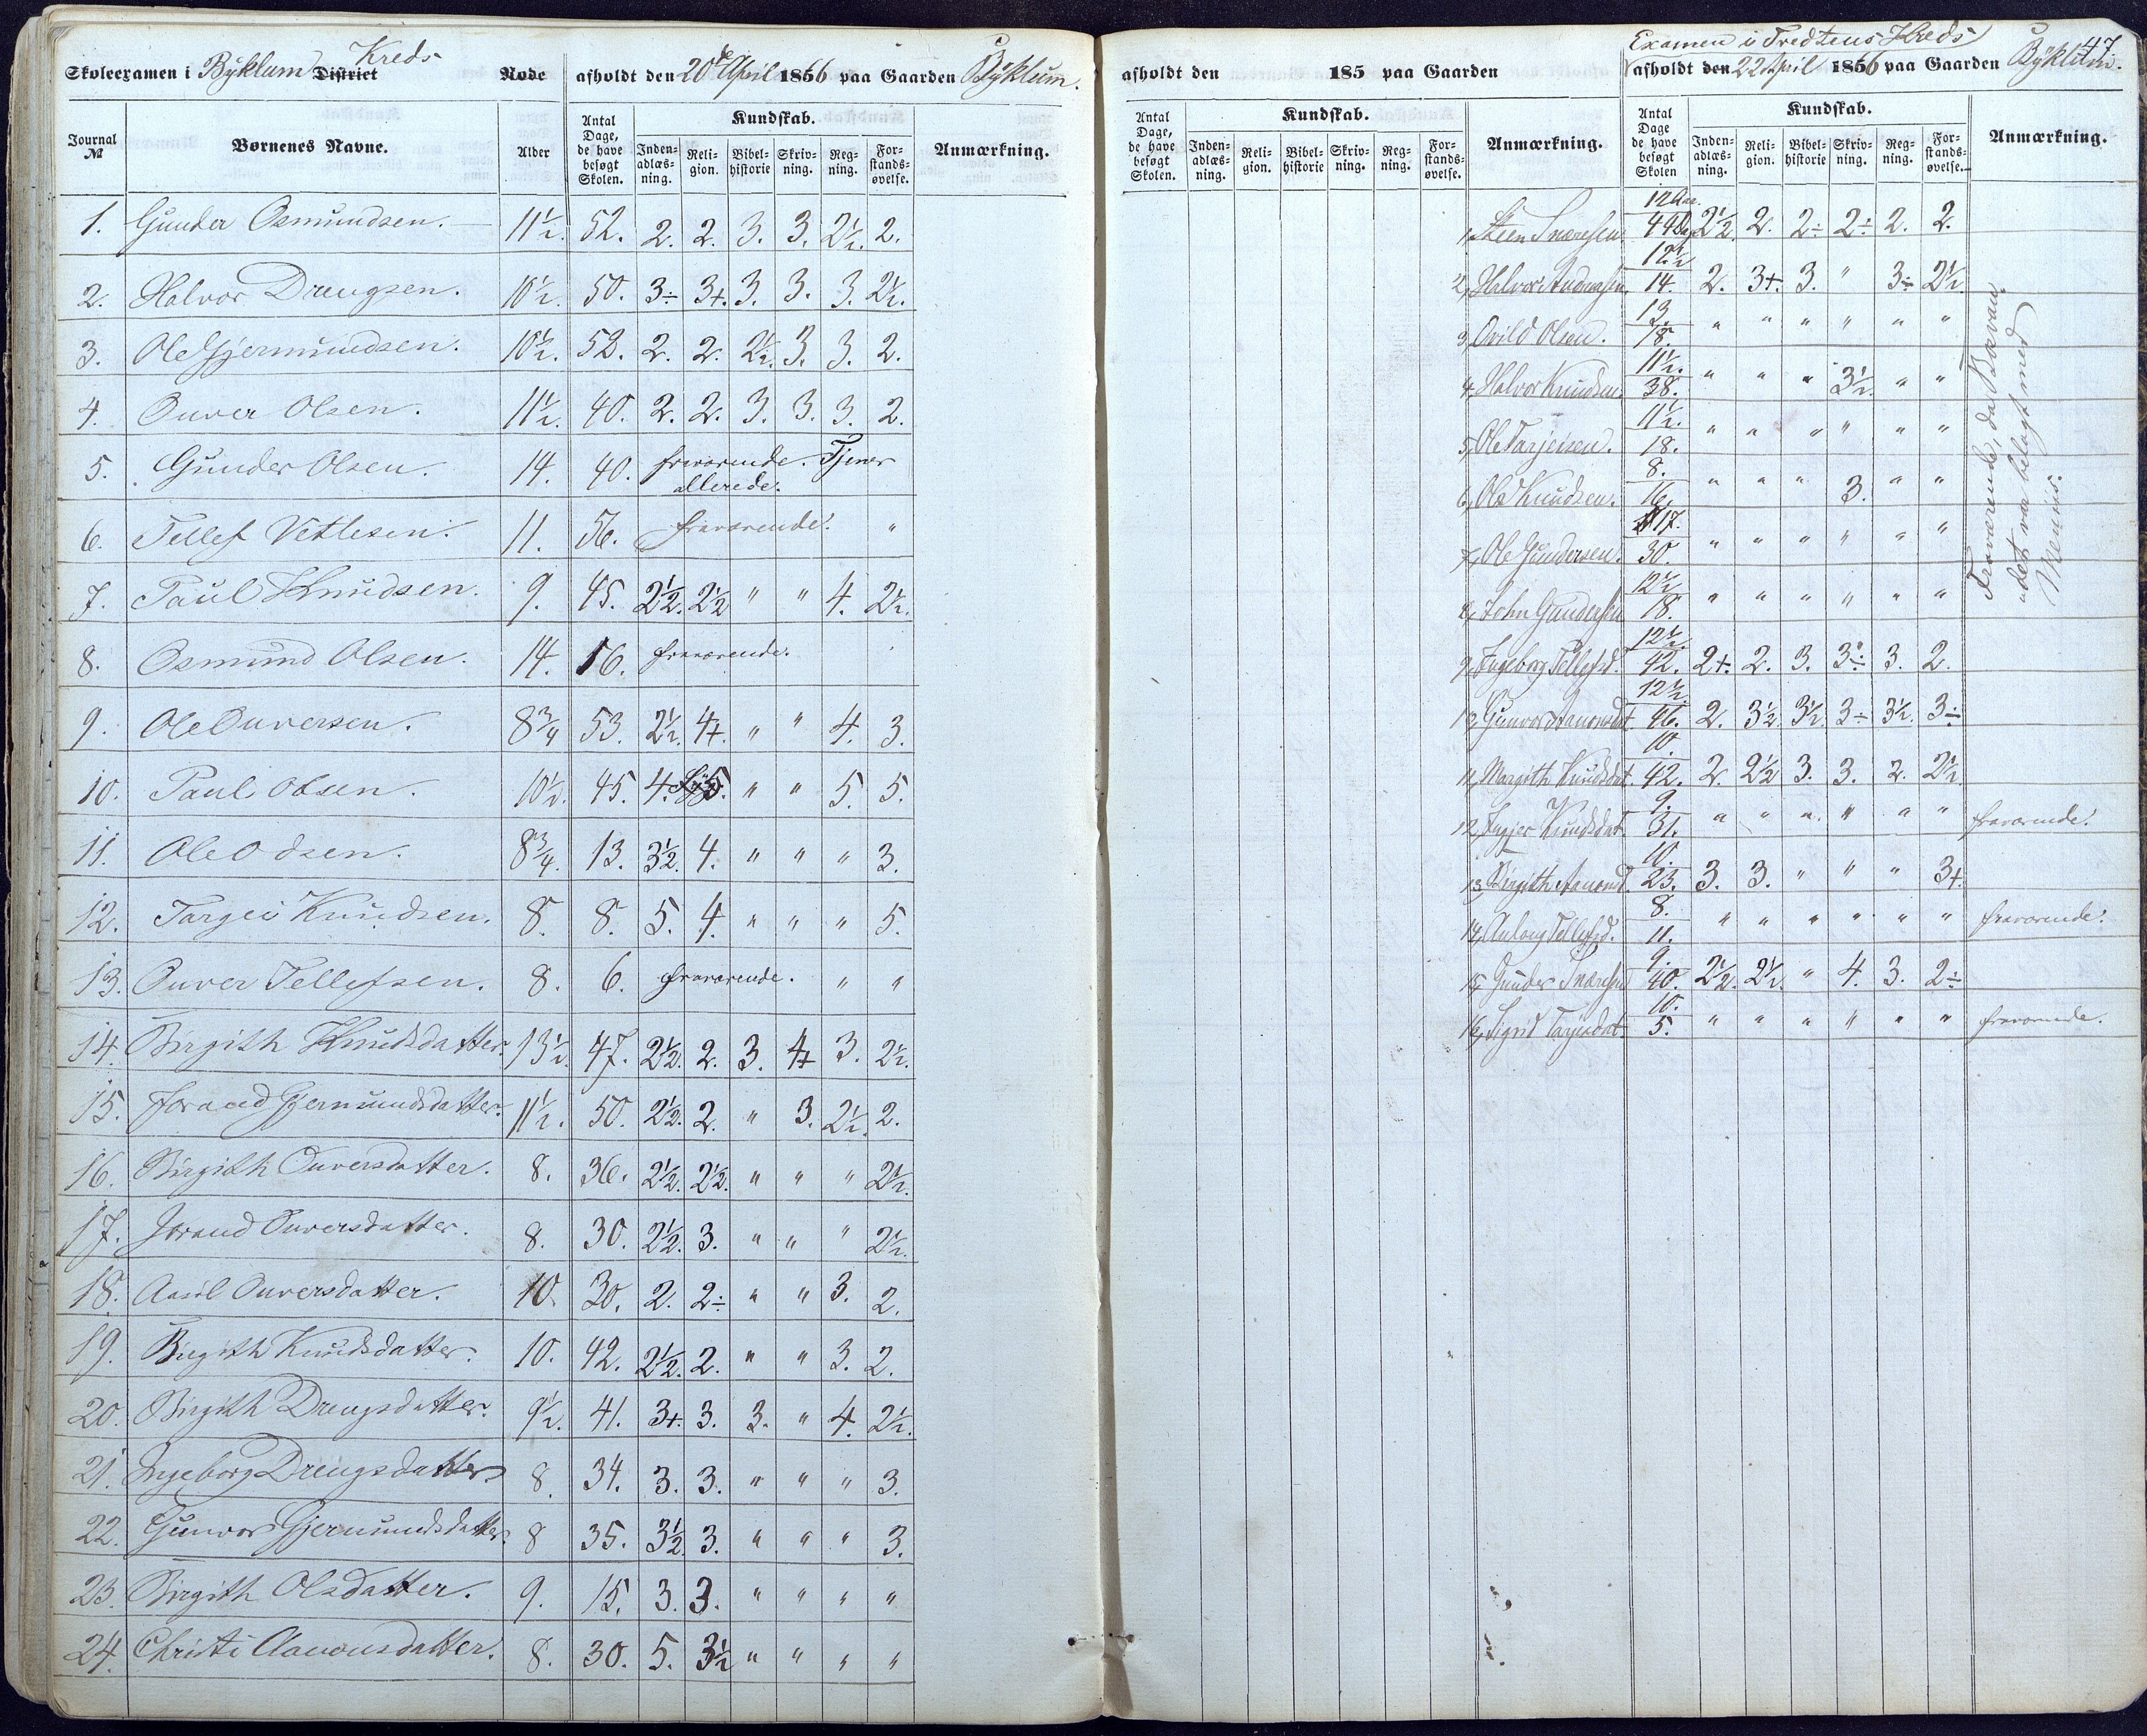 Skoleexamen i Byklum District Kreds Rode afholdt den 20de April 1856 paa Gaarden Byklum.
Journal № Børnenes Navne. Alder Antal Dage, de have besøgt Skolen. Kundskab. Inden-adlæs-ning. Reli-gion. Bibel-historie Skriv-ning. Reg-ning. For-stands-øvelse. Anmærkning.
1. Gunder Osmundsen. 11½. 52. 2. 2. 3. 3. 2½. 2.
2. Halvor Drengsen. 10½. 50. 3÷ 3+. 3. 3. 3. 2½.
3. Ole Gjermundsen. 10½. 52. 2. 2. 2½. 3. 3. 2.
4. Ouver Olsen. 11½. 40. 2. 2. 3. 3. 3. 2.
5. Gunder Olsen. 14. 40. fraværende. Tjener allerede.
6. Tellef Vetlesen. 11. 56. fraværende. "
7. Paul Knudsen. 9. 45. 2½. 2½ " " 4. 2½.
8. Osmund Olsen. 14. 16. fraværende.
9. Ole Ouversen. 8¾ 53. 2½. 4+. " " 4. 3.
10. Paul Olsen. 10½. 45. 4. 5. " " 5. 5.
11. Ole Odsen. 8¾. 13. 3½. 4. " " " 3.
12. Targei Knudsen. 8. 8. 5. 4. " " " 5.
13. Ouver Tellefsen. 8. 6. fraværende. " "
14. Birgith Knudsdatter. 13½. 47. 2½. 2. 3. 4+ 3. 2½.
15. Jorand Gjermundsdatter. 11½. 50. 2½. 2. " 3. 2½. 2.
16. Birgith Ouversdatter. 8. 36. 2½. 2½. " " " 2½.
17. Jorand Ouversdatter. 8. 30. 2½. 3. " " " 2½.
18. Aasil Ouversdatter. 10. 30. 2. 2÷ " " 3. 2.
19. Birgith Knudsdatter. 10. 42. 2½. 2. " " 3. 2.
20. Birgith Drengsdatter. 9½. 41. 3+. 3. 3. " 4. 2½.
21. Ingeborg Drengsdatter 8. 34. 3. 3. " " " 3.
22. Gunvor Gjermundsdatter. 8 35. 3½. 3. " " " 3.
23. Birgith Olsdatter. 9. 15. 3. 3. " " " "
24. Christi Aanonsdatter. 8. 30. 5. 3½ " " " "
47.
Examen i Tredteus Kreds
afholdt den 185 paa Gaarden afholdt den 22 April 1856 paa Gaarden Byklum.
Antal Dage, de have besøgt Skolen. Kundskab. Inden-adlæs-ning. Reli-gion. Bibel-historie Skriv-ning. Reg-ning. For-stands-øvelse. Anmærkning. Antal Dage de have besøgt Skolen Kundskab. Inden-adlæs-ning. Reli-gion. Bibel-historie Skriv-ning. Reg-ning. For-stands-øvelse. Anmærkning.
1, Steen Snaresen 12 Aar. 44 Dag 2½. 2. 2÷ 2÷ 2. 2.
2, Halvor Andersen. 12½ 14. 2. 3+. 3. " 3÷ 2½.
3, Ovild Olsen. 13. 18. " " " " " "
4. Halvor Knudsen. 11½. 38. " " " 3½. " "
5, Ole Tarjeisen. 11½. 18. " " " " " "
6, Ole Knudsen. 8. 16. " " " 3. " "
7, Ole Gundersen. 17. 30. " " " " " "
8, John Gundersen 12½ 18. " " " " " "
Fraværende, da
det var belagt med
9, Ingeborg Tellefsd. 12½. 42. 2+. 2. 3. 3÷ 3. 2.
10, Gunvor Aanonsdat. 12½. 46. 2. 3½. 3½. 3÷ 3½. 3÷
11, Margith Knudsdat. 10. 42. 2. 2½ 3. 3. 2. 2½
12, Ingjer Knudsdat. 9. 31. " " " " " " fraværende.
13, Birgith Aanonsd. 10. 23. 3. 3. " " " 3+.
14, Anlaug Tellefsd. 8. 11. " " " " " " fraværende.
15, Gunder Snaresen 9. 40. 2½. 2½. " 4. 3. 2÷
16, Sigrid Tarjeisdat 10. 5. " " " " " " fraværende.